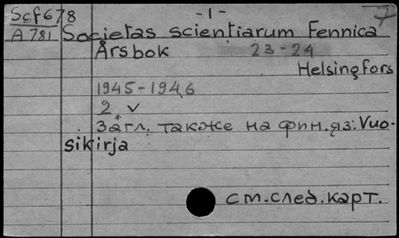 Scf678 -1- 7
A 781 Societas scientiarum Fennica
Årsbok 23-24
Helsingfors
1945-1946
2 v
Загл. также на фин.яз: Vuo-
sikirja
см.след.карт.